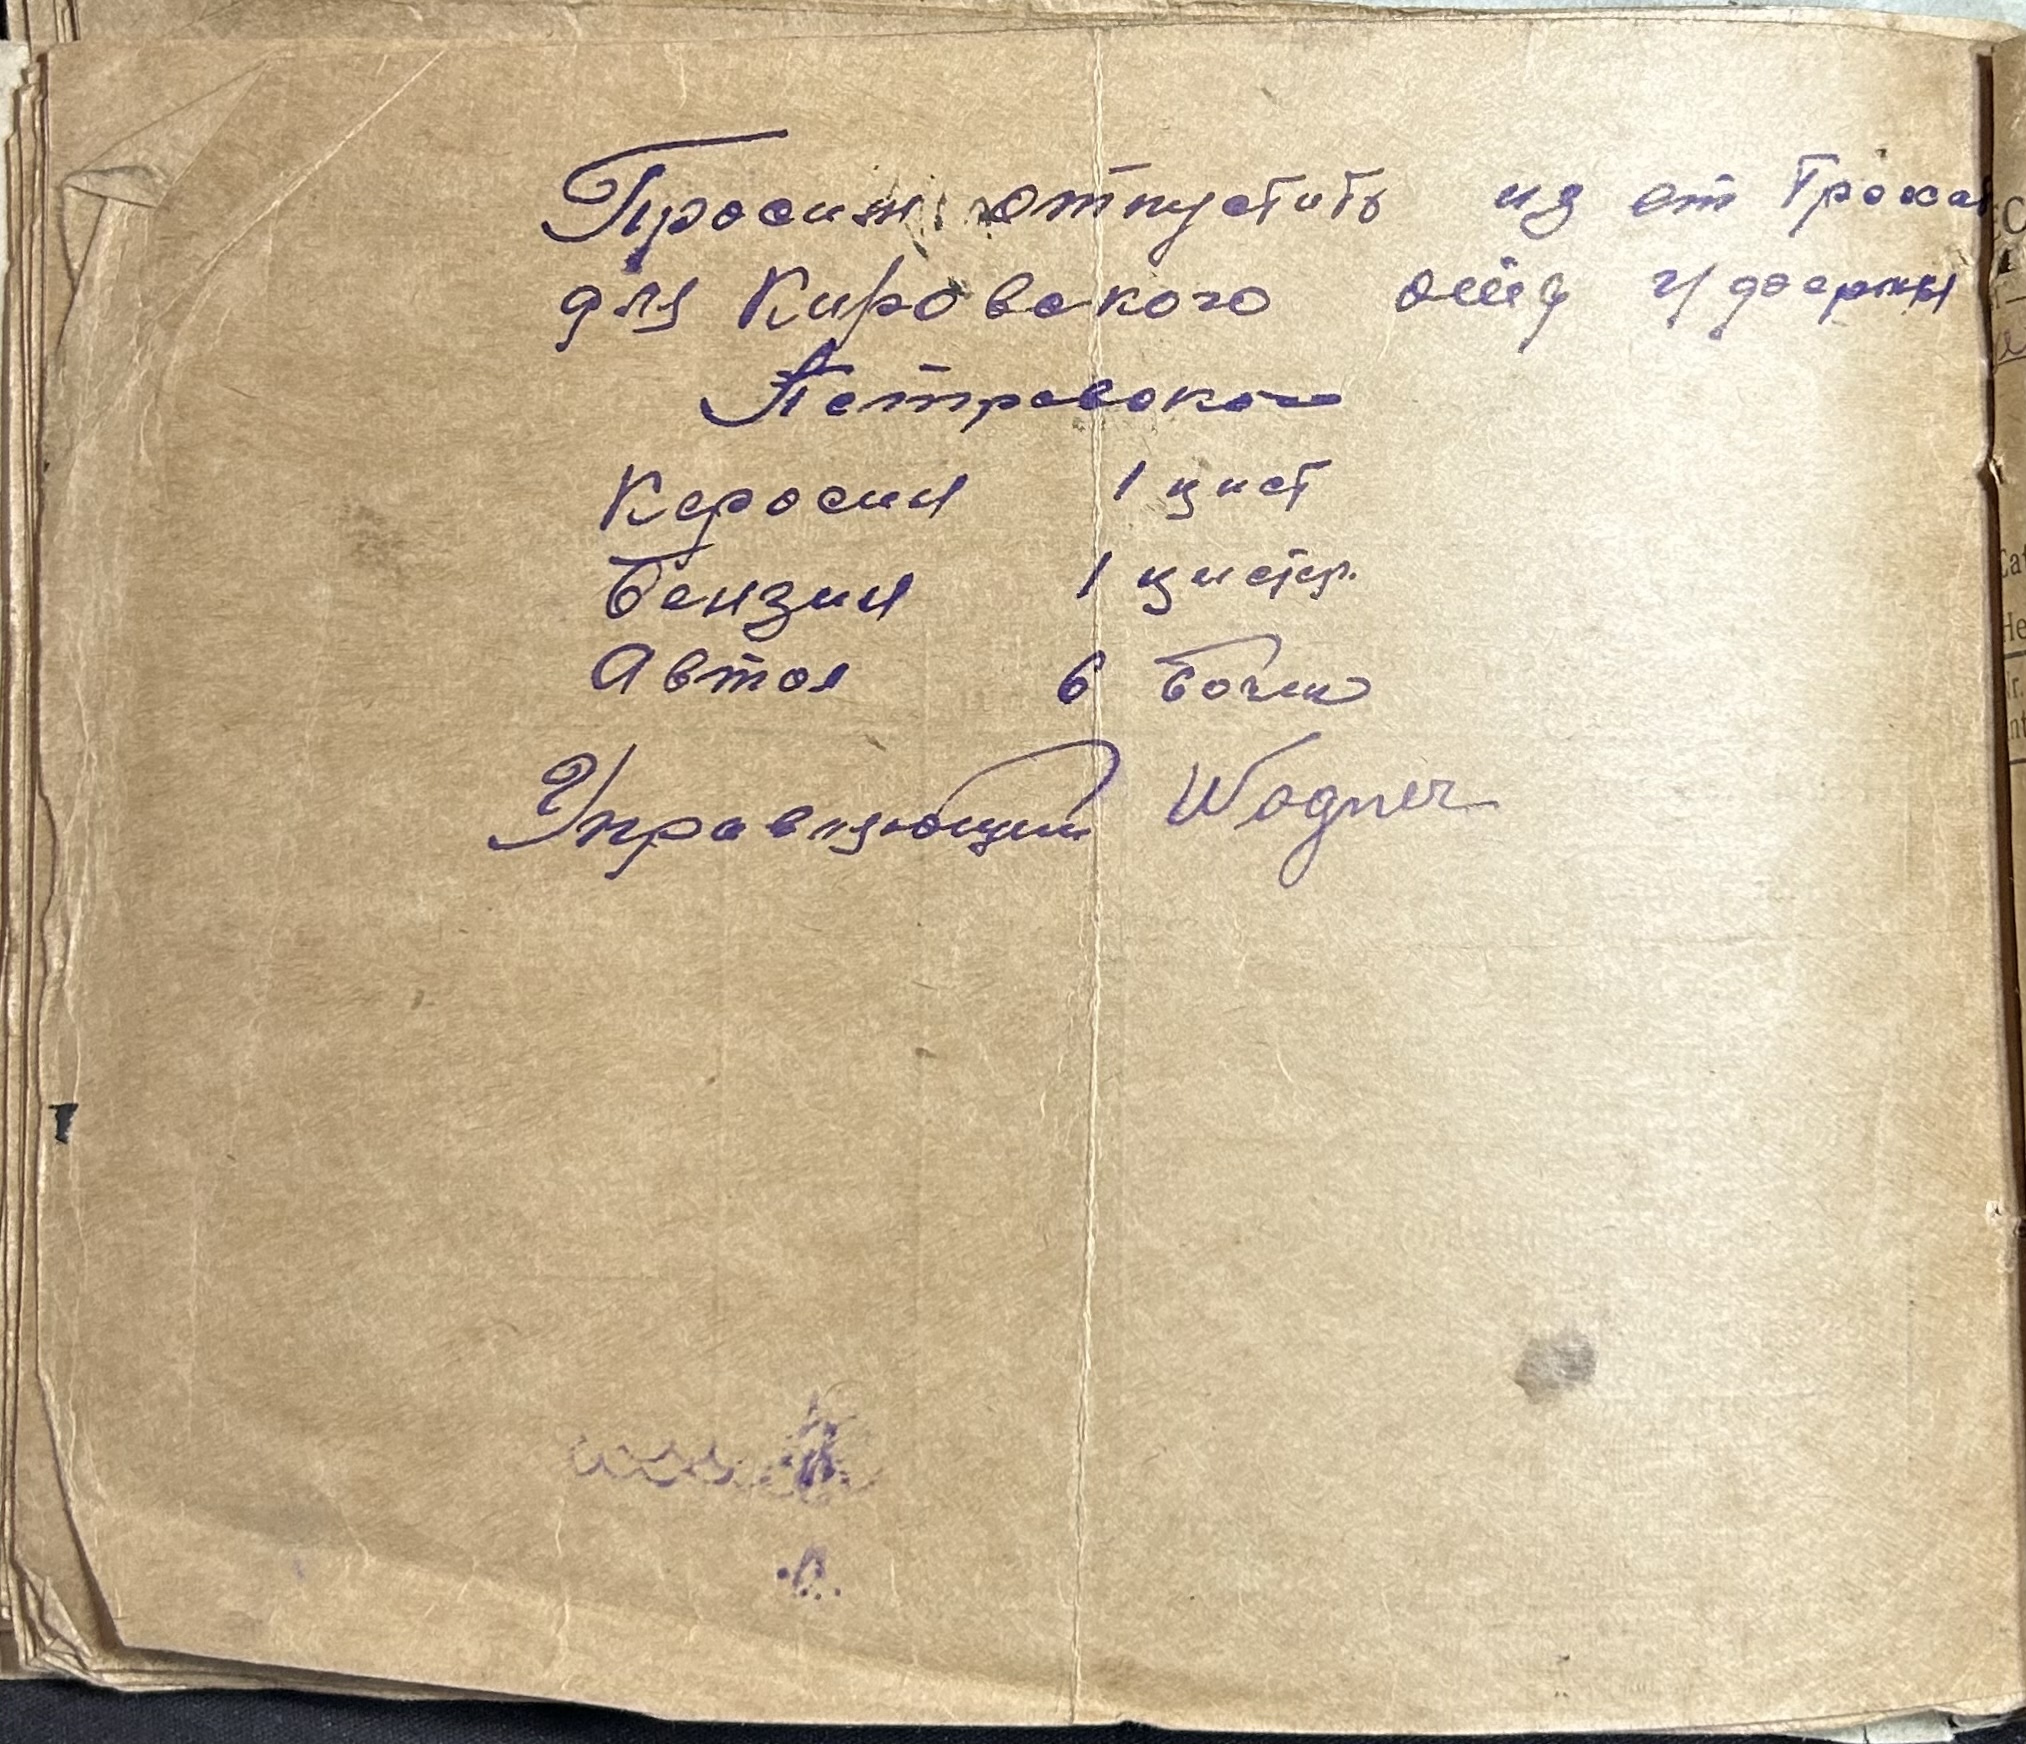 Просим отпустить из ст Грохо
для Кировского
Петровско
Керосин 1 цист
Бензин 1 цистер.
Автол 6 бочки
Управляющий Wagner